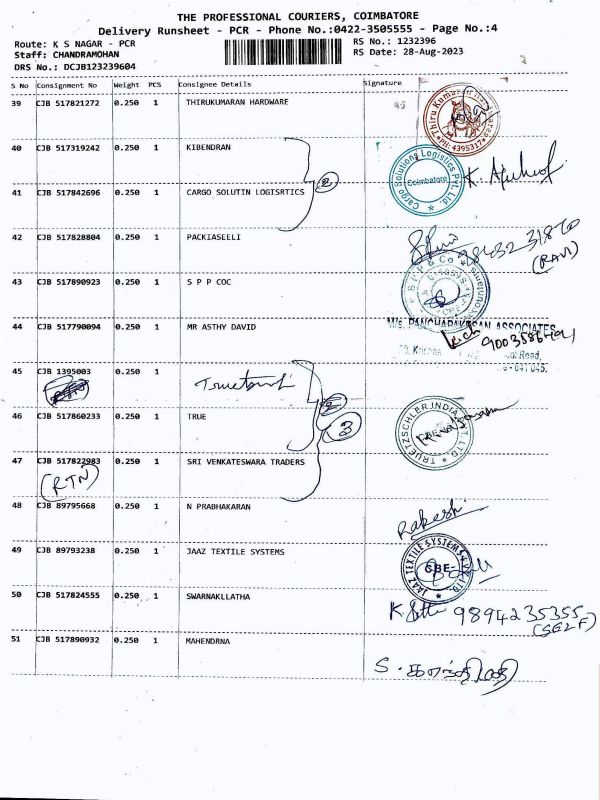 THE PROFESSIONAL COURIERS, COIMBATORE
Delivery Runsheet - PCR - Phone No.:0422-3505555 - Page No.:4
Route: K S NAGAR - PCR
RS No.: 1232396
Staff: CHANDRAMOHAN
RS Date: 28-Aug-2023
DRS No.: DCJB123239604
S No Consignment No Weight PCS Consignee Details Signature
39 CJB 517821272 0.250 1 THIRUKUMARAN HARDWARE
Thiru Kumaran
PH: 4395317
40 CJB 517319242 0.250 1 KIBENDRAN
Cargo Solutions Logistics Pvt. Ltd.
Coimbatore
41 CJB 517842696 0.250 1 CARGO SOLUTIN LOGISRTICS
2
42 CJB 517828804 0.250 1 PACKIASEELI
(RAVI)
43 CJB 517890923 0.250 1 S P P COC
S P P & Co
44 CJB 517790094 0.250 1 MR ASTHY DAVID
M/s. PANCHAPAKESAN ASSOCIATES
Road,
45 CJB 1395003 0.250 1
46 CJB 517860233 0.250 1 TRUE
3
TRUETZSCHLER INDIA PVT LTD
47 CJB 517822983 0.250 1 SRI VENKATESWARA TRADERS
(RTN)
48 CJB 89795668 0.250 1 N PRABHAKARAN
Rakesh
49 CJB 89793238 0.250 1 JAAZ TEXTILE SYSTEMS
JAAZ TEXTILE SYSTEMS PVT. LTD.
CBE-
50 CJB 517824555 0.250 1 SWARNAKLLATHA
9894235355
(SELF)
51 CJB 517890932 0.250 1 MAHENDRNA